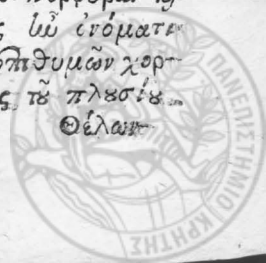 ς ἦν ὀνόματι
ἐπιθυμῶν χορ-
ς τȣ͂ πλȣσίȣ
Θέλων
ΠΑΝΕΠΙΣΤΗΜΙΟ ΚΡΗΤΗΣ